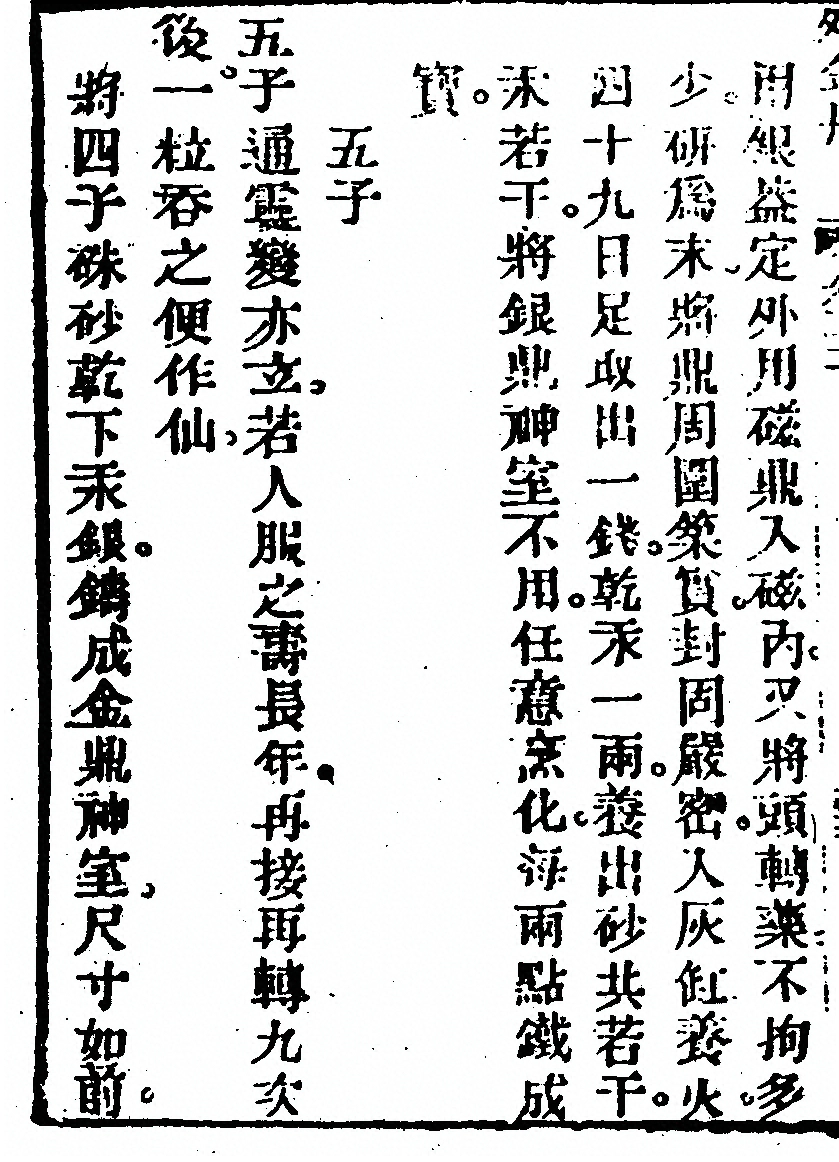 用銀盎定外用磁鼎入磁內。又將頭轉藥不拘多
少。研爲末。將鼎周圍築實。封固嚴密。入灰缸養火。
四十九日足取出一銖。乾汞一兩。養出砂共若干。
汞若干。將銀鼎神室不用。任意烹化。每兩點鐵成
寳。
五子
五子通靈變亦立。若人服之壽長年。再接再轉九次
後。一粒吞之便作仙。
將四子硃砂乾下汞銀。鑄成金鼎神室。尺寸如前。